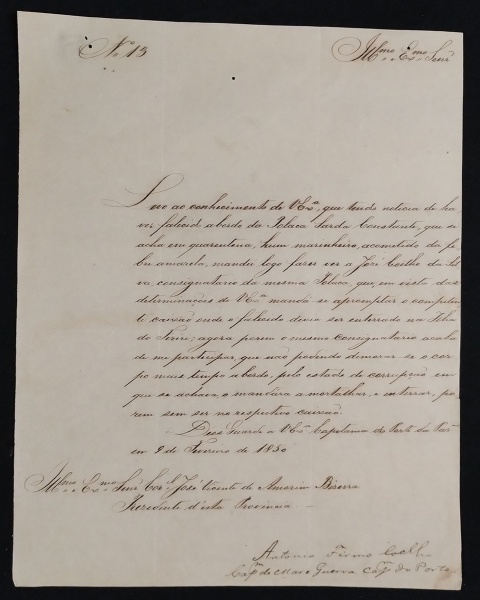 N.º 13
Illmo. Exmo. Senr.
Levo ao conhecimento de VExª, que tendo noticia de ha
ver falecido abordo da Polaca Sarda Constante, que se
acha em quarentena, hum marinheiro, acometido da fe
bre amarela, mandei logo fazer ver a José Coelho da Sil
va, consignatario da mesma Polaca, que, em vista das
determinações de VExª mandasse apromptar o competen
te caixão onde o falecido devia ser enterrado na Ilha
do ; agora porem o mesmo consignatario acaba
de me participar, que não podendo demorar se o cor
po mais tempo abordo, pelo estado de corrupção em
que se achava, o mandára amortalhar, e enterrar, po
rem sem ser no respectivo caixão.
Deos Guarde a VExª Capitania do Porto da
em 9 de Fevereiro de 1850
Illmo. Exmo. Senr. Cor.el José Vicente de Amorim Bizerra
Presidente d'esta Provincia.
Antonio Firmo Coelho
Capm. de Mar e Guerra Capm. do Porto